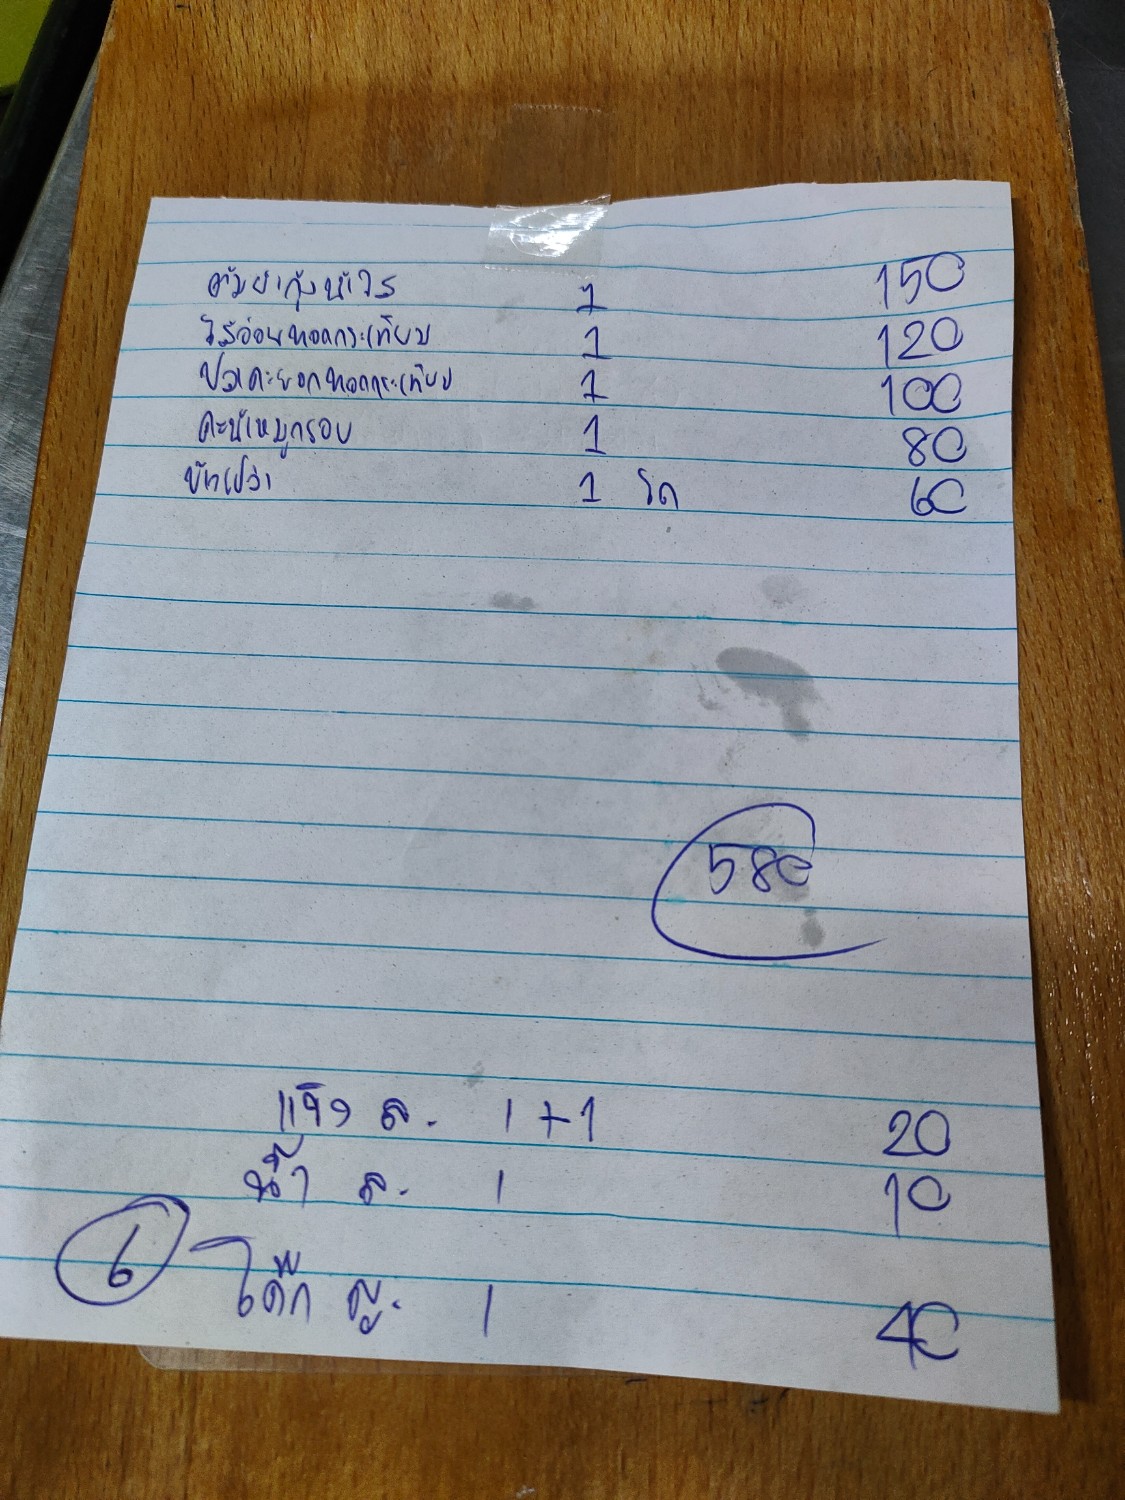 ต้มยำกุ้งน้ำใส 1 150
ไส้อ่อนทอดกระเทียม 1 120
ปลาคะยอกทอดกระเทียม 1 100
คะน้าหมูกรอบ 1 80
ข้าวเปล่า 1 โถ 60
580
แข็ง ล. 1+1 20
น้ำ ล. 1 10
6 โค๊ก ญ. 1 40